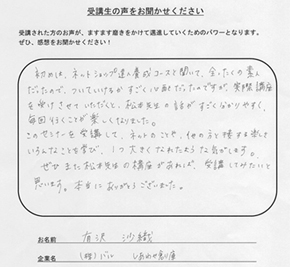 受講生の声をお聞かせください
受講された方のお声が、ますます磨きをかけて邁進していくためのパワーとなります。
ぜひ、感想をお聞かせください!
初めは、ネットショップ達人養成コースと聞いて、全くの素人
だったので、ついていけるかすごく心配だったのですが、実際講座
を受けさせていただくと、松本先生の話がすごく分かりやすく、
毎回行くことが楽しくなりました。
このセミナーを受講して、ネットのことや、他の
いろんなことを学び、1つ大きくなれたような気がします。
ぜひまた松本先生の講座があれば、受講してみたいと
思います。本当にありがとうございました。
お名前 有沢 沙織
企業名